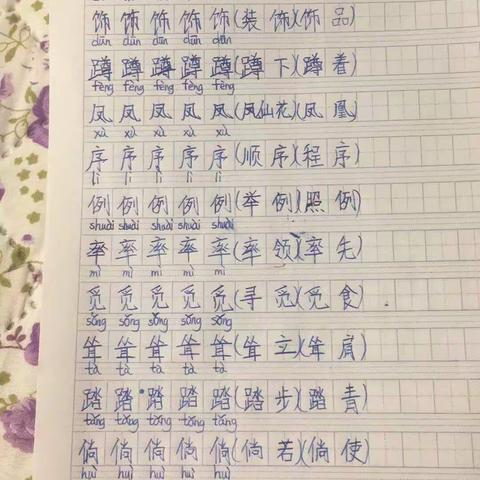 饰 饰 饰 饰 饰(装 饰)(饰 品)
dūn dūn dūn dūn dūn
蹲 蹲 蹲 蹲 蹲(蹲 下)(蹲 着)
fèng fèng fèng fèng fèng
凤 凤 凤 凤 凤(凤仙花)(凤 凰)
xù xù xù xù xù
序 序 序 序 序(顺 序)(程 序)
lì lì lì lì lì
例 例 例 例 例(举 例)(照 例)
shuài shuài shuài shuài shuài
率 率 率 率 率(率 领)(率 先)
mì mì mì mì mì
觅 觅 觅 觅 觅(寻 觅)(觅 食)
sǒng sǒng sǒng sǒng sǒng
耸 耸 耸 耸 耸(耸 立)(耸 肩)
tà tà tà tà tà
踏 踏 踏 踏 踏(踏 步)(踏 青)
tǎng tǎng tǎng tǎng tǎng
倘 倘 倘 倘 倘(倘 若)(倘 使)
huì huì huì huì huì